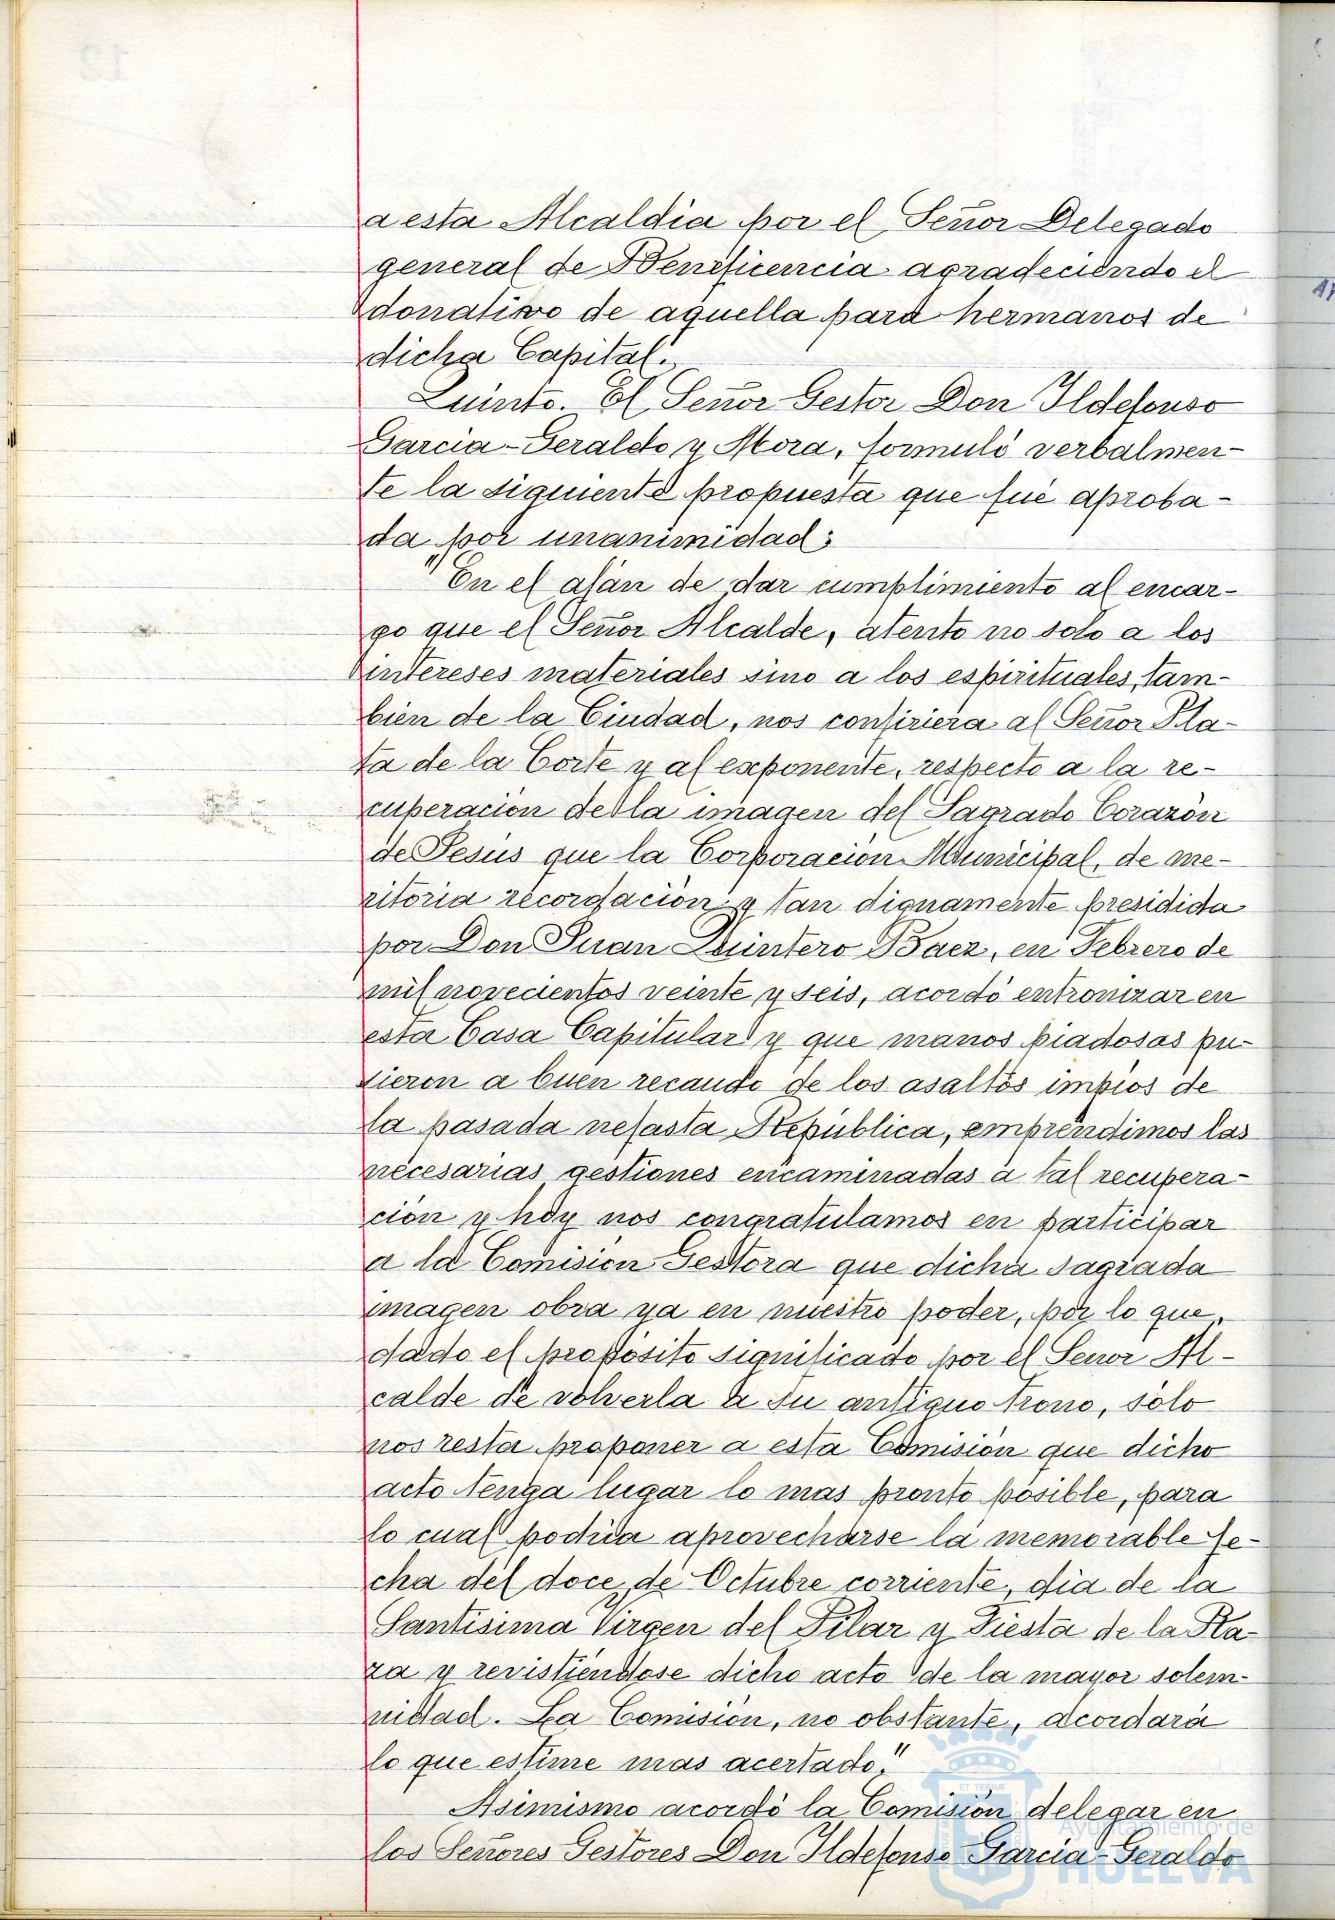 a esta Alcaldia por el Señor Delegado
general de Beneficencia agradeciendo el
donativo de aquella para hermanos de
dicha Capital.
Quinto. El Señor Gestor Don Ildefonso
Garcia-Geraldo y Mora, formuló verbalmen-
te la siguiente propuesta que fué aproba-
da por unanimidad:
"En el afán de dar cumplimiento al encar-
go que el Señor Alcalde, atento no solo a los
intereses materiales sino a los espirituales, tam-
bién de la Ciudad, nos confiriera al Señor Pla-
ta de la Corte y al exponente, respecto a la re-
cuperación de la imagen del Sagrado Corazón
de Jesús que la Corporación Municipal, de me-
ritoria recordación y tan dignamente presidida
por Don Juan Quintero Baez, en Febrero de
mil novecientos veinte y seis, acordó entronizar en
esta Casa Capitular y que manos piadosas pu-
sieron a buen recaudo de los asaltos impíos de
la pasada nefasta República, emprendimos las
necesarias gestiones encaminadas a tal recupera-
ción y hoy nos congratulamos en participar
a la Comisión Gestora que dicha sagrada
imagen obra ya en nuestro poder, por lo que,
dado el propósito significado por el Señor Al-
calde de volverla a su antiguo trono, sólo
nos resta proponer a esta Comisión que dicho
acto tenga lugar lo mas pronto posible, para
lo cual podría aprovecharse la memorable fe-
cha del doce de Octubre corriente, día de la
Santísima Virgen del Pilar y Fiesta de la Ra-
za y revistiéndose dicho acto de la mayor solem-
nidad. La Comisión, no obstante, acordará
lo que estime mas acertado."
Asimismo acordó la Comisión delegar en
los Señores Gestores Don Ildefonso García-Geraldo
Ayuntamiento de
HUELVA